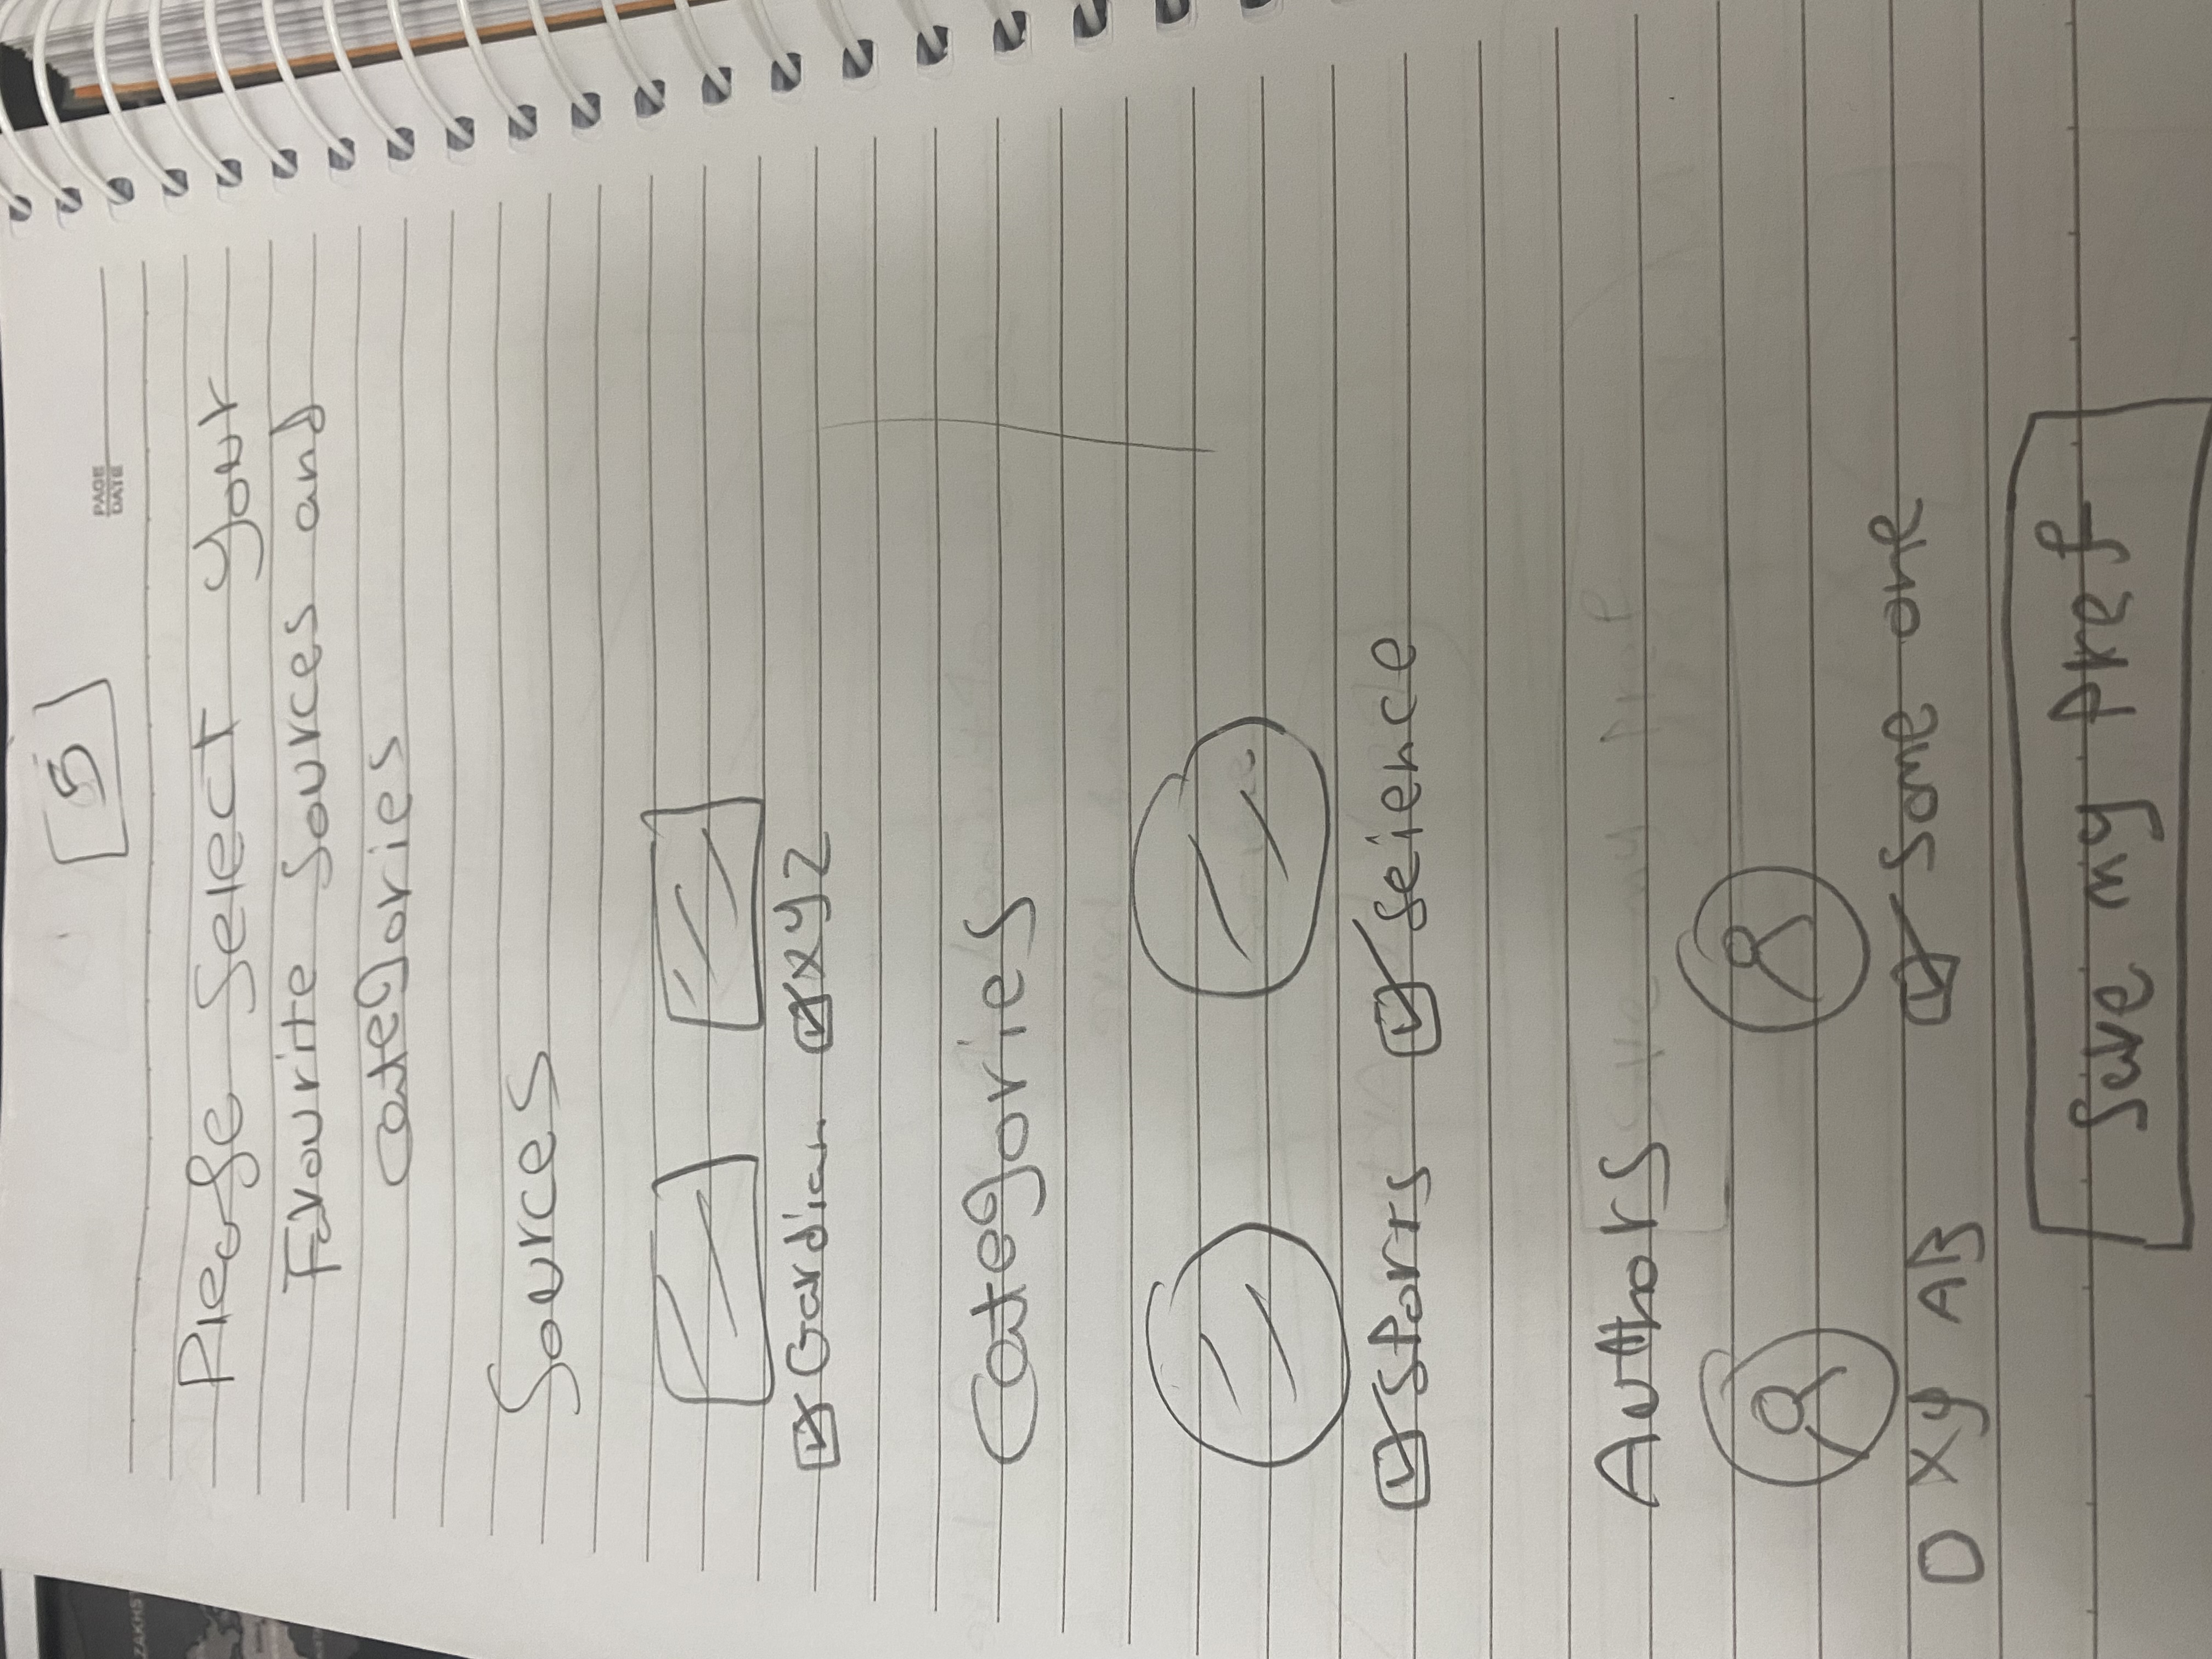 5
PAGE
DATE
Please Select Your
Favourite Sources and
categories
Sources
Gardian XYZ
Categories
Sports Seience
Authors
XY AB Some one
Save my Pref